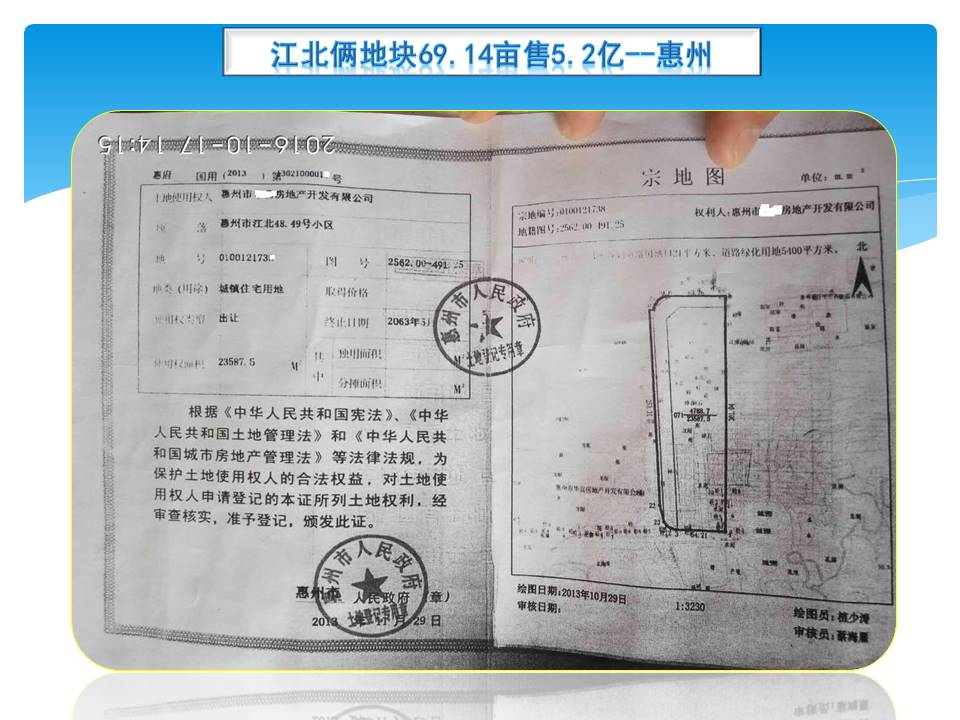 江北俩地块69.14亩售5.2亿--惠州
2016-10-17 14:15
惠府 国用（2013 ）第 302100001 号
土地使用权人 惠州市 房地产开发有限公司
座 落 惠州市江北48.49号小区
地 号 010012173 图 号 2562.00-491.25
地类（用途） 城镇住宅用地 取得价格
使用权类型 出让 终止日期 2063年5
使用权面积 23587.5 M² 其中 独用面积 M²
分摊面积 M²
根据《中华人民共和国宪法》、《中华
人民共和国土地管理法》和《中华人民共
和国城市房地产管理法》等法律法规，为
保护土地使用权人的合法权益，对土地使
用权人申请登记的本证所列土地权利，经
审查核实，准予登记，颁发此证。
惠州市 人民政府（章）
2013 年 月 29 日
惠州市人民政府
土地登记专用章
惠州市人民政府
土地登记专用章
宗地图
单位：
宗地编号:0100121738 权利人:惠州市 房地产开发有限公司
地籍图号:2562.00-491.25
平方米、道路绿化用地5400平方米。
北
071
4788.7
23587.5
惠州市华嘉房地产开发有限公司
22
23
64.21
绘图日期:2013年10月29日
1:3230
审核日期:
绘图员:
审核员: